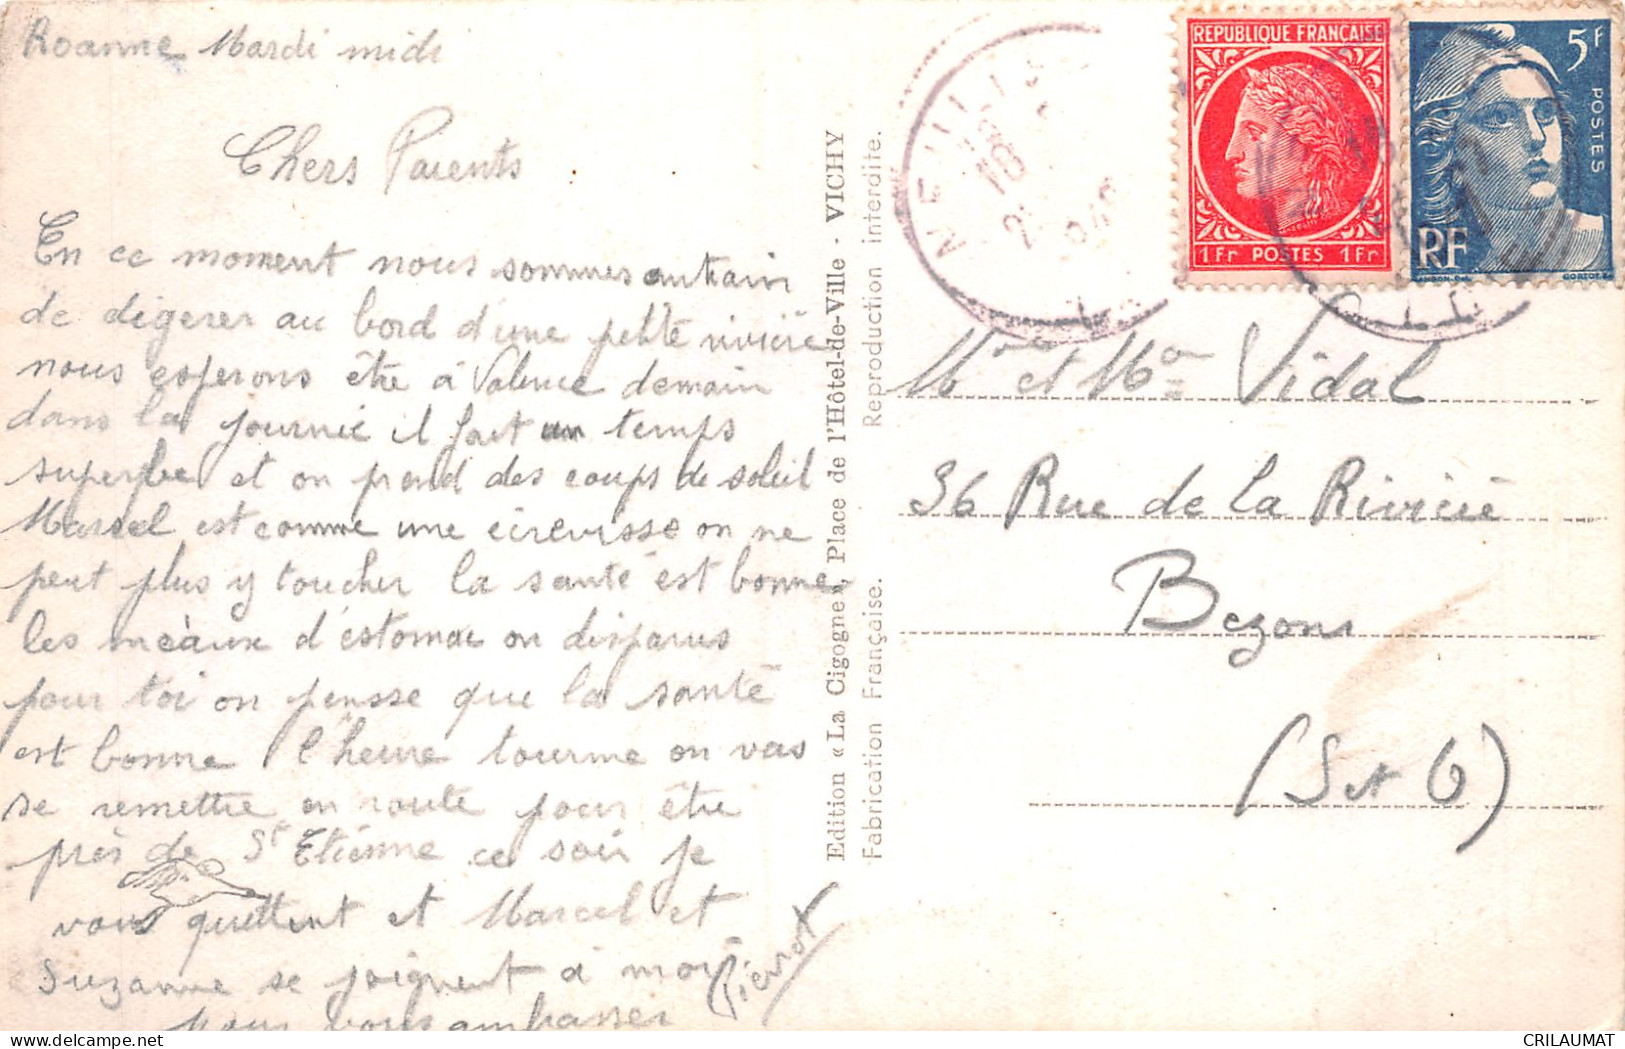 Roanne Mardi midi
Chers Parents
En ce moment nous sommes au train
de digerer au bord d'une petite rivière
nous esperons être à Valence demain
dans la journée il fait un temps
superbe et on prend des coups de soleil
Marcel est comme une écrevisse on ne
peut plus y toucher la santé est bonne
les meaux d'estomac on disparus
pour toi on pensse que la santé
est bonne l'heure tourne on vas
se remettre en route pour être
près de St Etienne ce soir je
vous quittent et Marcel et
Suzanne se joignent à moi
pour vous embrasser
Pierrot
Edition «La Cigogne» Place de l'Hôtel-de-Ville - VICHY
Fabrication Française. Reproduction interdite.
NEUILLY
18
REPUBLIQUE FRANÇAISE
1Fr POSTES 1Fr
5F
POSTES
RF
GANDON
Mr et Mme Vidal
36 Rue de la Rivière
Bezons
(S et O)
CRILAUMAT